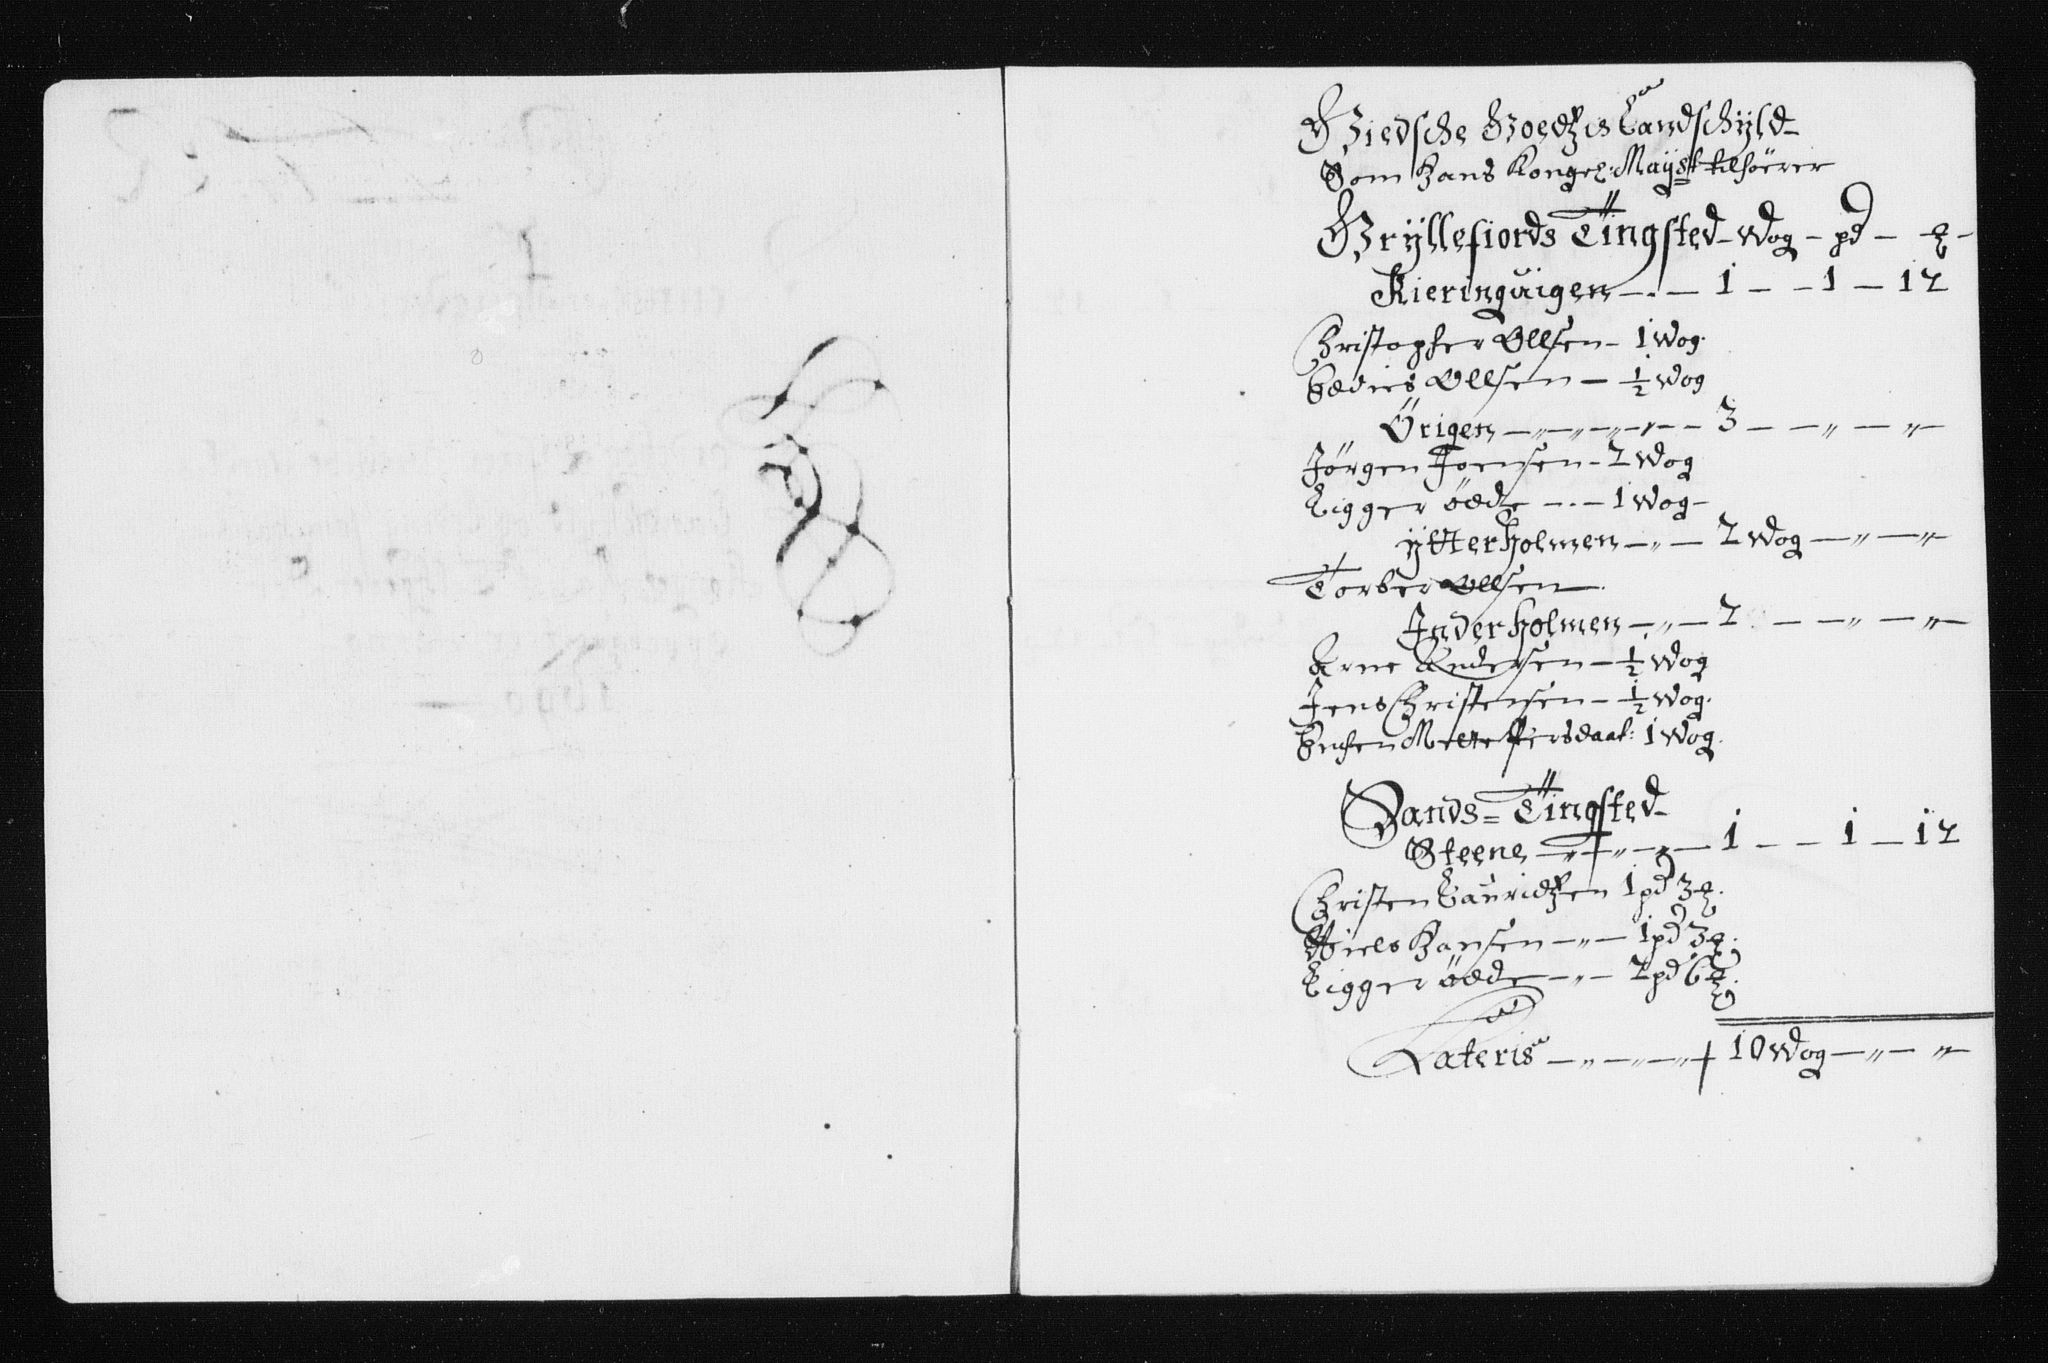 Giedsche Goedtzis Landschÿld
Som Hans Kongel: Mayst tilhörer
Grÿllefiords Tingsted - Wog - pd - ℔ -
Kieringuigen - 1 - - 1 - 12
Christopher Ollsen - 1 Wog.
Ollsen - ½ Wog
Örigen - „ - „ - „ - 3 - - „ - „ -
Jörgen Joensen - 2 Wog
Ligger öede - 1 Wog -
ÿtterholmen - „ - 2 Wog - „ - „ -
Torber Ollsen
Inderholmen - „ - 2 - - „ - „ -
Arne Andersen - ½ Wog
Jens Christensen - ½ Wog.
1 Wog.
Sands = Tingsted
Steene - „ - „ - „ - 1 - - 1 - 12
Christen Lauridtzen 1 pd 3 ℔.
Niels Hansen - „ - 1 pd 3 ℔.
Ligger öede - „ - 2 pd 6 ℔.
Lateris - „ - „ - „ - 10 Wog - „ - „ -